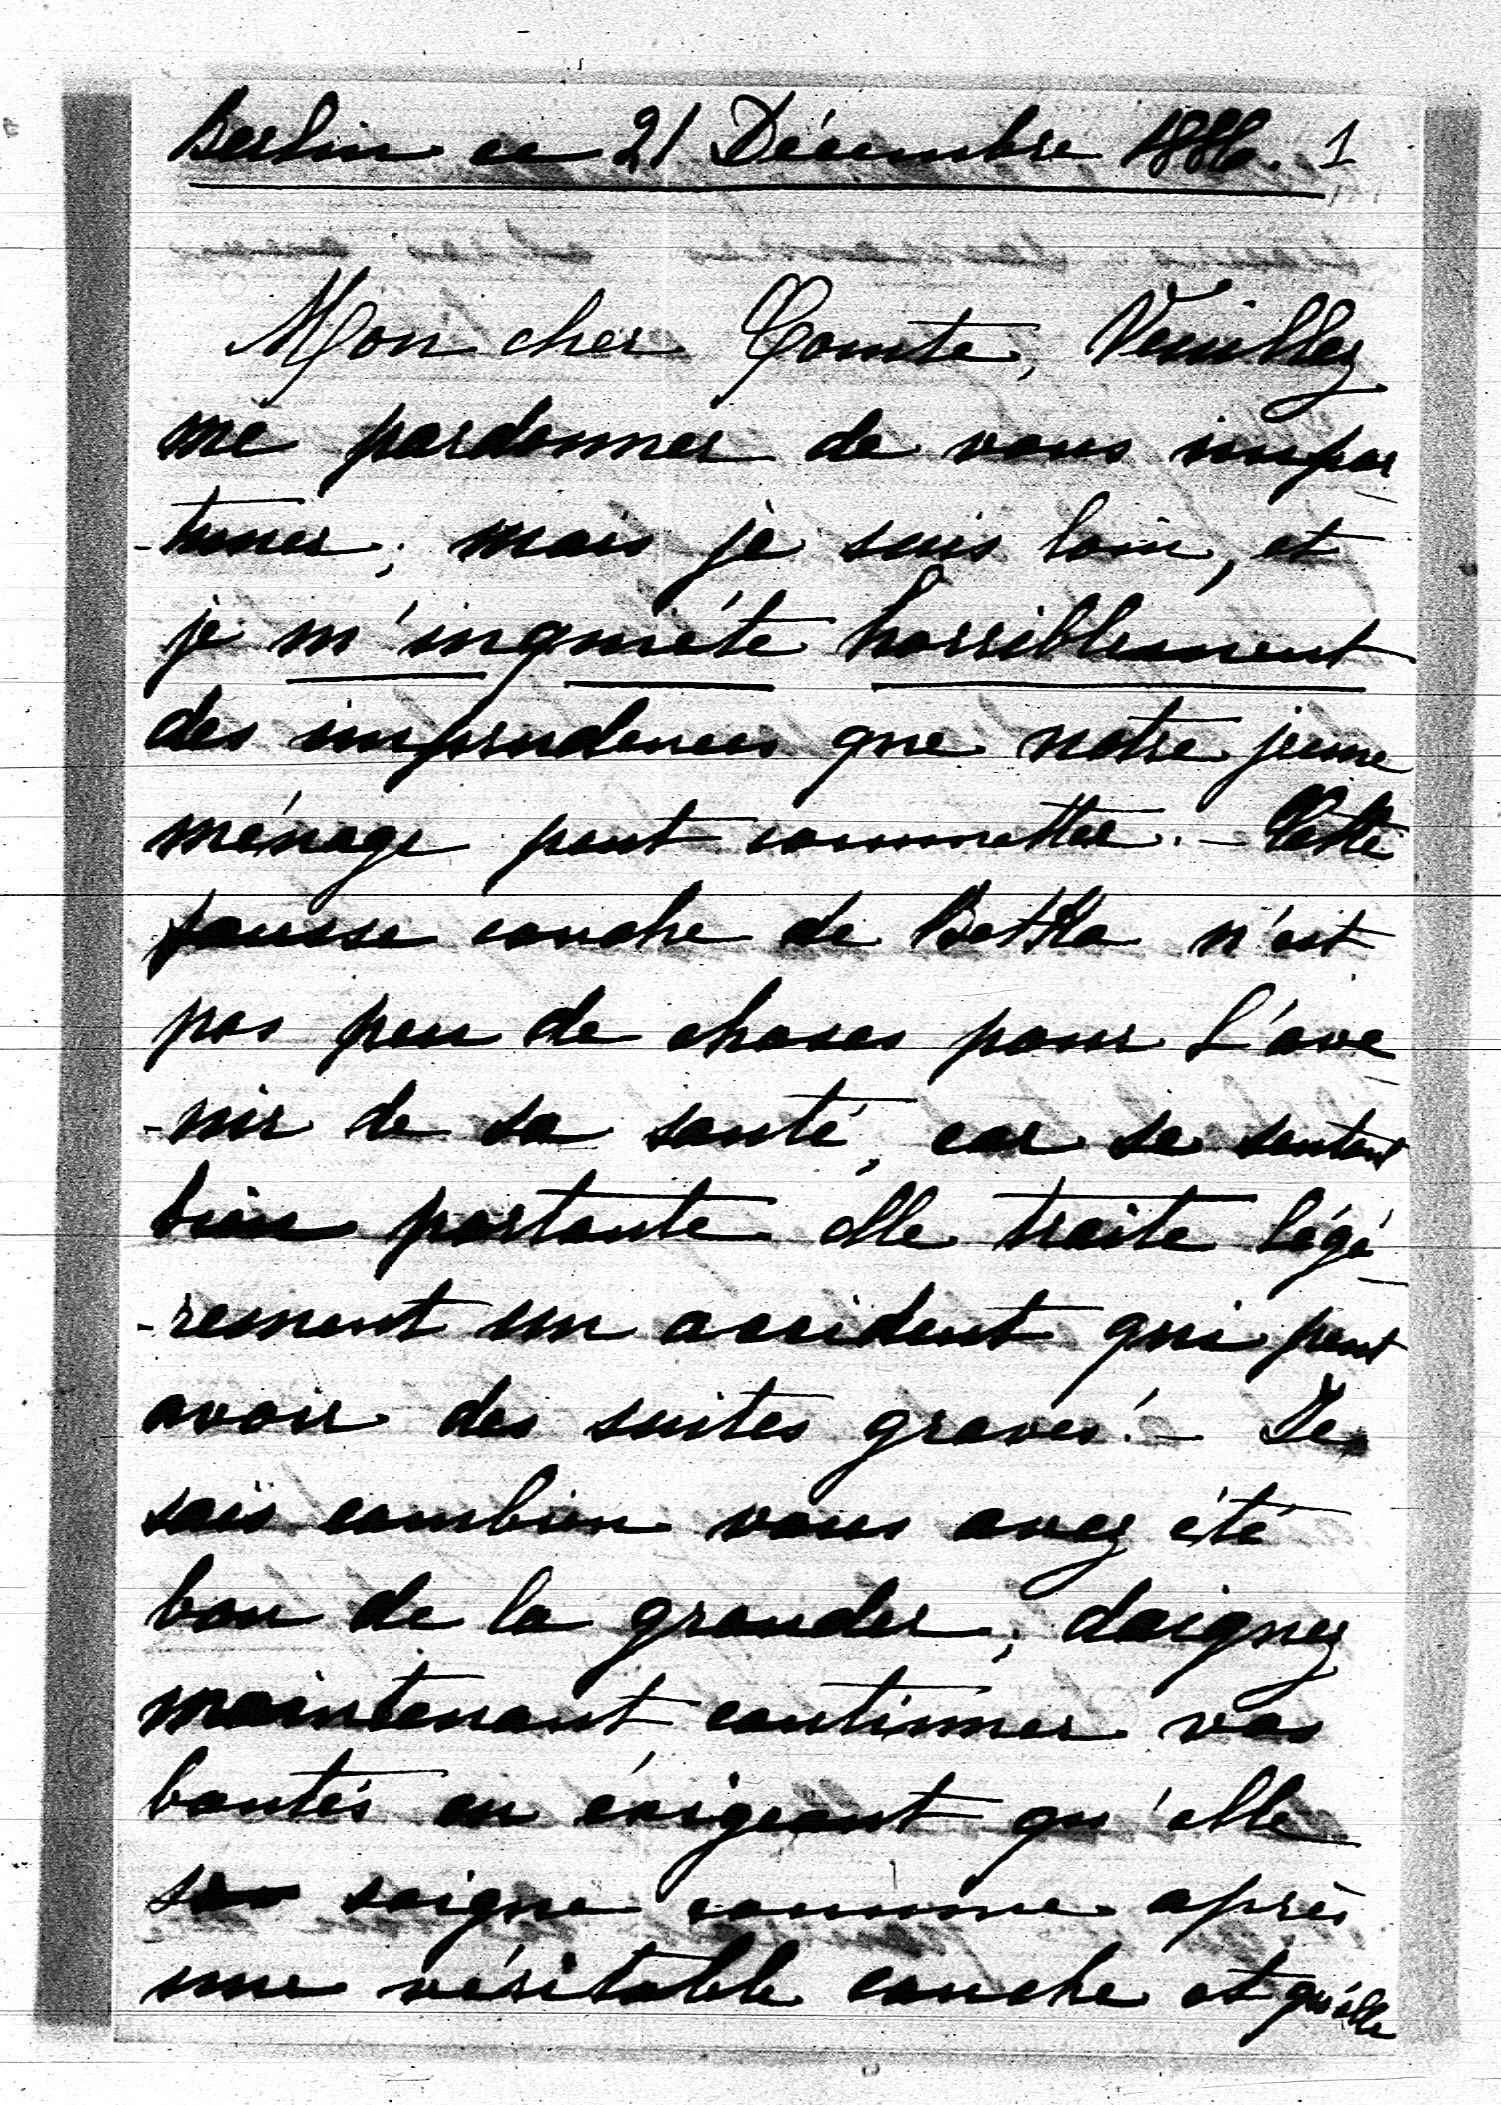 Berlin ce 21 Décembre 1886. 1
Mon cher Comte, Veuillez
me pardonner de vous impor
-tuner; mais je suis loin, et
je m'inquiéte horriblement
des imprudences que notre jeune
ménage peut commettre. - Cette
fausse couche de Betka n'est
pas peu de choses pour l'ave
-nir de sa santé, car se sentant
bien portante elle traite légé
-rement un accident qui peut
avoir des suites graves! - Je
sais combien vous avez été
bon de la gronder; daignez
maintenant continuer vos
bontés en éxigeant qu'elle
se soigne comme après
une véritable couche et qu'elle